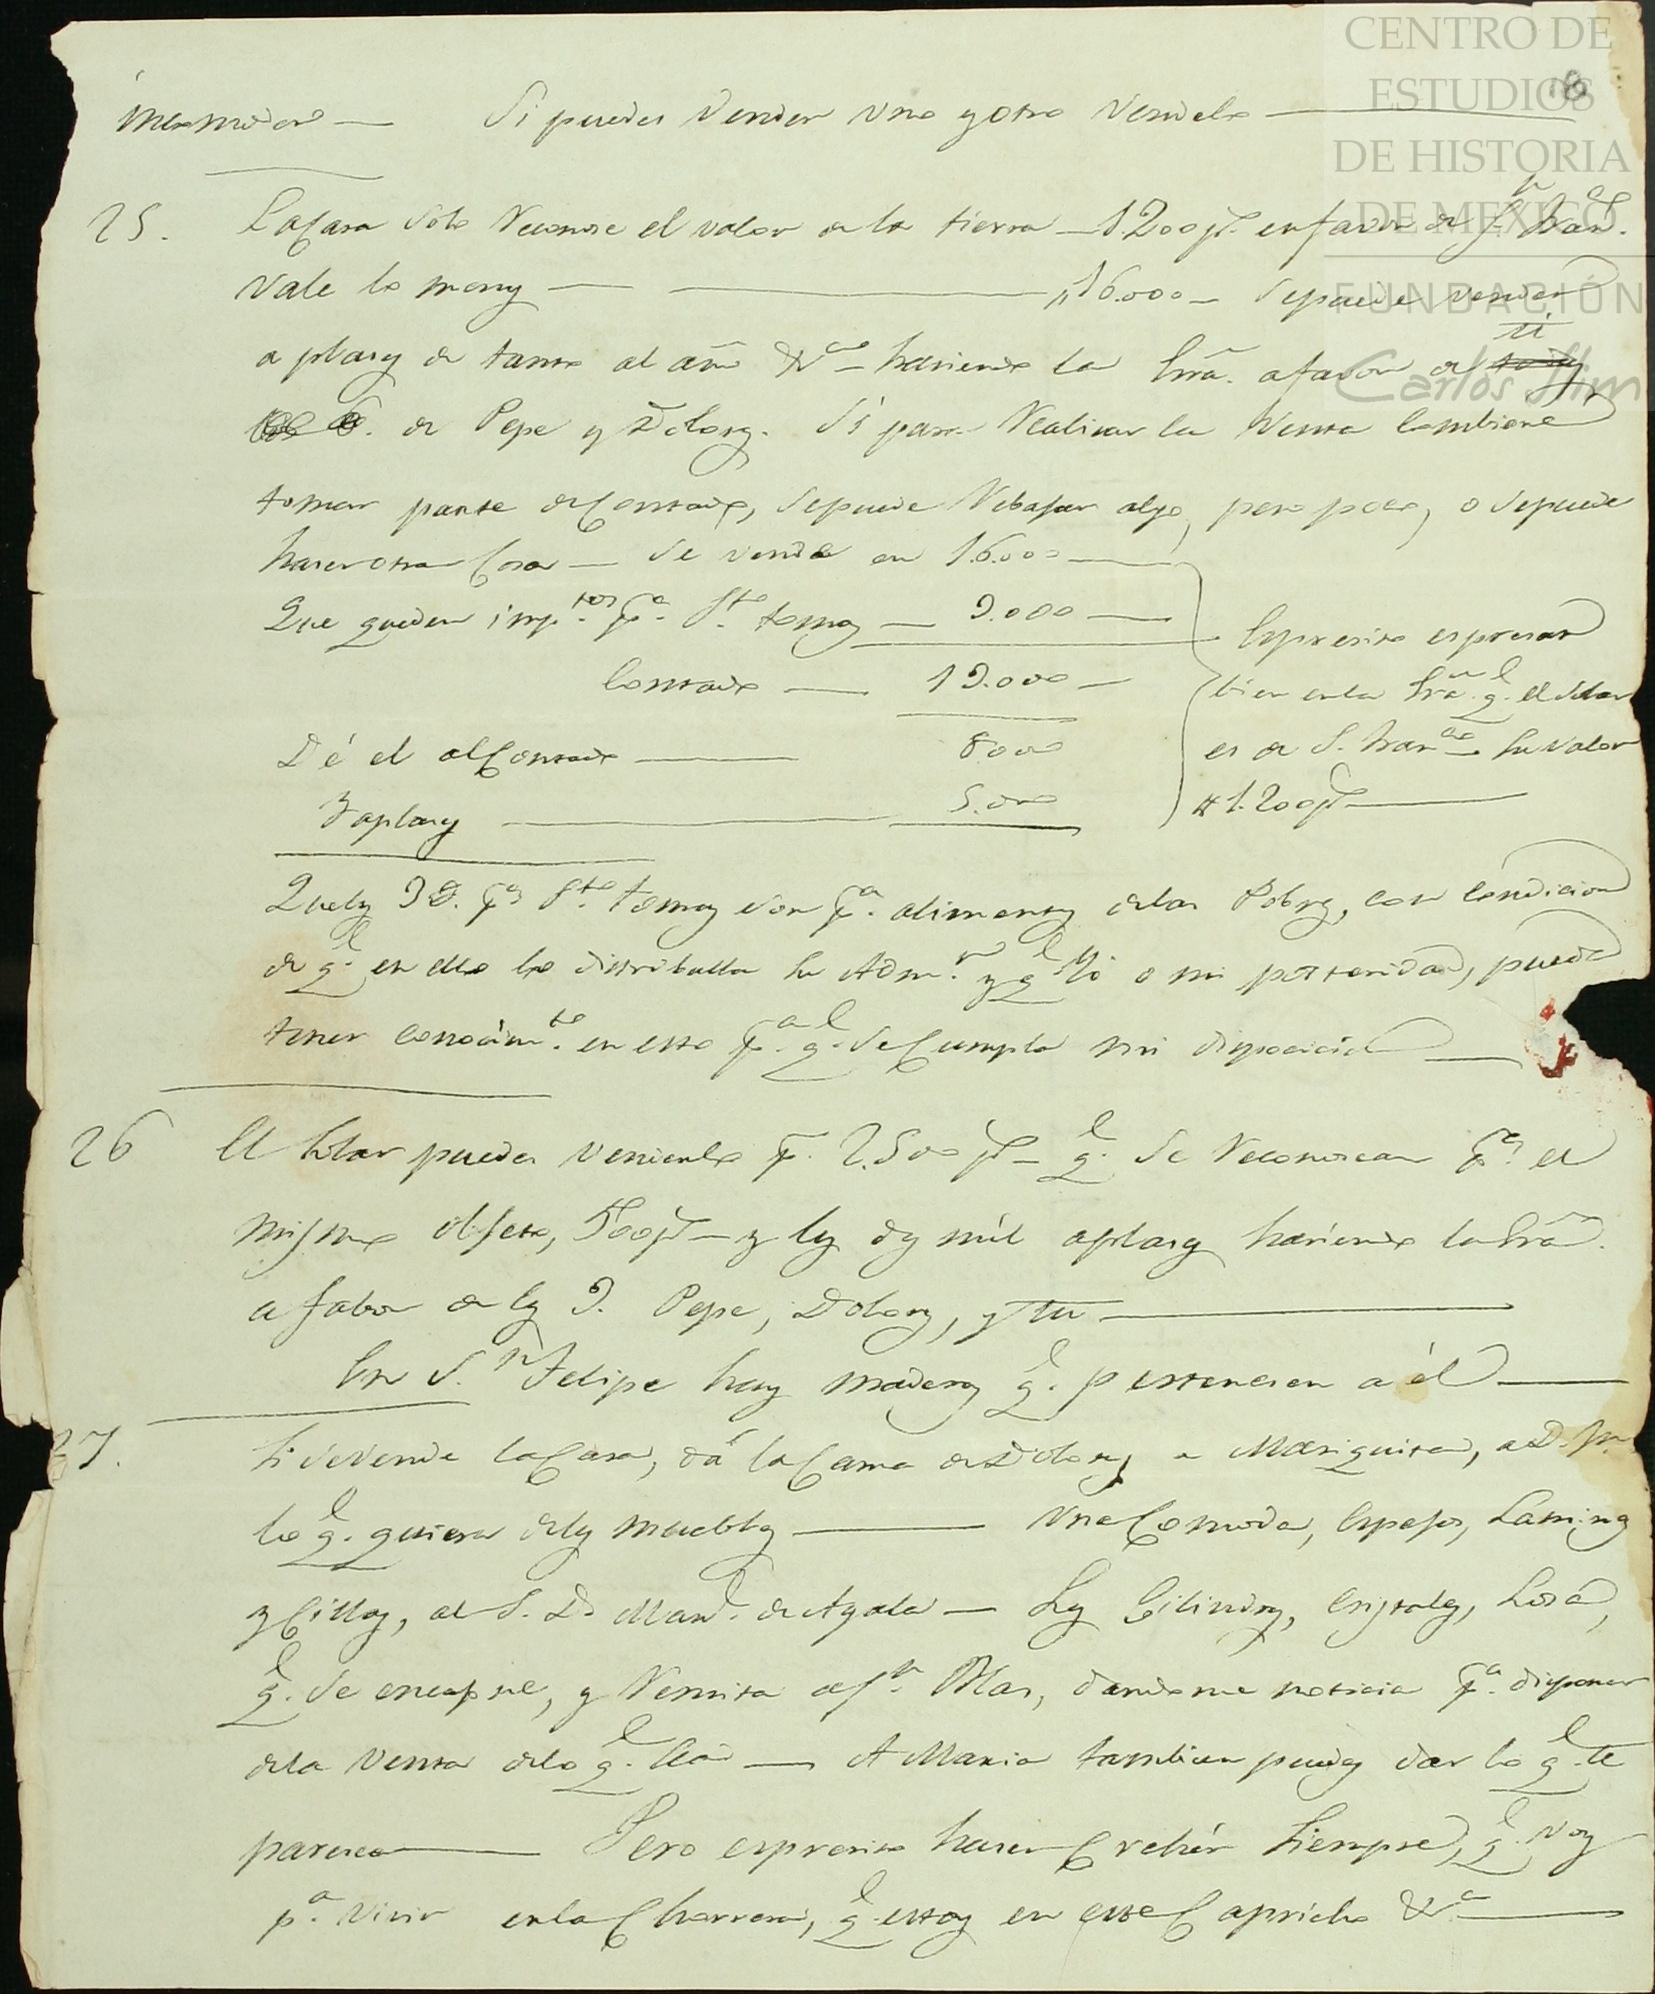 CENTRO DE
ESTUDIOS
DE HISTORIA
DE MEXICO
FUNDACIÓN
Carlos Slim
18
incomodaro — Si puedes vender una y otra vendela —
25. La Casa solo Reconose el valor de la tierra — 1.200 p.s en favor de S.n Fran.co
vale lo menos — 16.000 — Se puede vender
a plasos de tanto al año &.a — haciendo la Esrã. a favor de ti
de Pepe y Dolores. Si para Realisar la Venta combiene
tomar parte de Contado, se puede Rebajar algo, pero poco, o se puede
haser otra Cosa — Se vende en 16.000 —
Que queden imp.tos p.a S.to tomas — 3.000 —
Contado — 13.000 —
Dé el al Contado — 8.000
Y a plasos — 5.000
Es presiso espresar
bien en la Esrã. q.e el Solar
es de S. Fran.co — su valor
1.200 p.s —
Que los 3 @. p.a S.to tomas son p.a alimentos de los Pobres, con condicion
de q.e en ello lo distribulla su Adm.or y q.e Yó o mi posteridad, pueda
tener conocim.to en esto p.a q.e se Cumpla mi disposición —
26 El Solar puedes venderlo p.r 2.500 p.s — q.e se Reconoscan p.a el
mismo objeto, 500 p.s — y los dos mil a plasos haciendo la Esrã.
a fabor de los 3. Pepe, Dolores, y tu —
En S.n Felipe hay maderas q.e pertenesen a él —
27. Si se vende la Casa, dá la Cama de Dolores a Mariquita,
lo q.e quiera de los muebles — Una Comoda, Espejos, Laminas
y Sillas, al S. D. Man.l de Ayala — Los Cilindros, Cristales, Losa,
q.e se encaxone, y Remita a S.n Blas, dandome noticia p.a disponer
de la Venta de lo q.e sea — A Maria tambien puedes dar lo q.e te
paresca — Pero es presiso haser Crehér Siempre, q.e voy
p.a vivir en la Charrera, q.e estoy en este Capricho &.a —